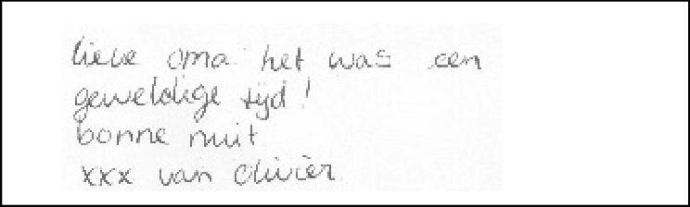 lieve oma het was een
geweldige tijd!
bonne nuit
xxx van olivier